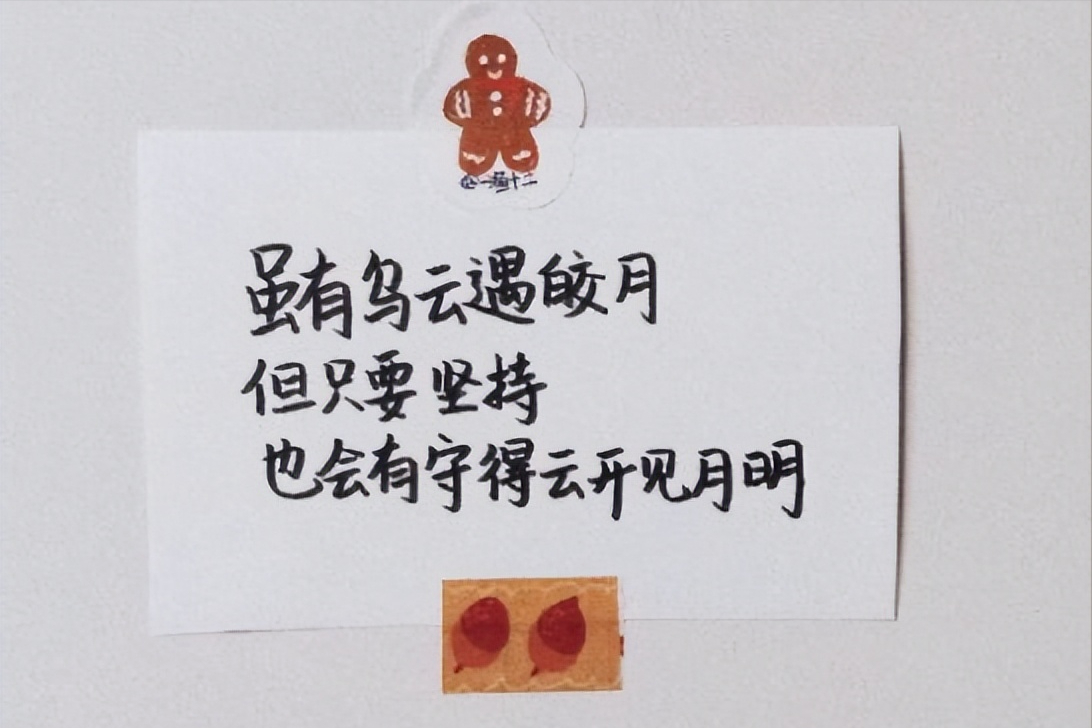 虽有乌云遇皎月
但只要坚持
也会有守得云开见月明